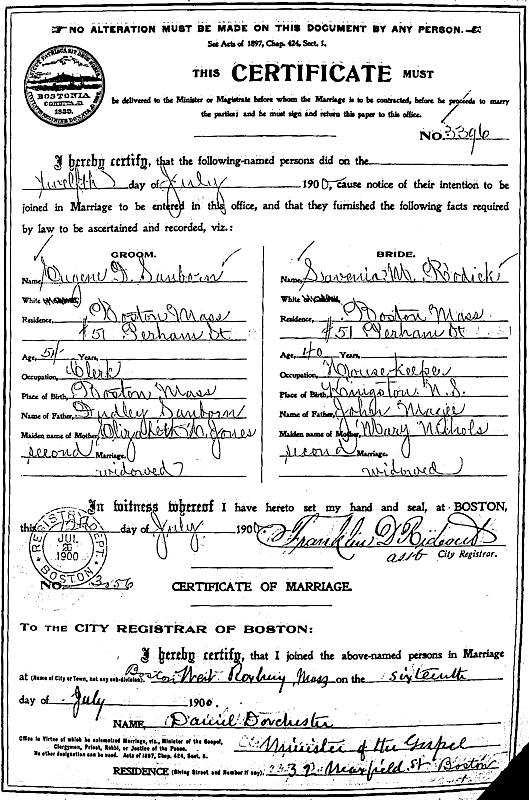 NO ALTERATION MUST BE MADE ON THIS DOCUMENT BY ANY PERSON.
See Acts of 1897, Chap. 424, Sect. 5.
THIS CERTIFICATE MUST
be delivered to the Minister or Magistrate before whom the Marriage is to be contracted, before he proceeds to marry
the parties; and he must sign and return this paper to this office.
BOSTONIA
CONDITA A.D.
1630.
No. 3396
I hereby certify, that the following-named persons did on the
twelfth day of July 1900, cause notice of their intention to be
joined in Marriage to be entered in this office, and that they furnished the following facts required
by law to be ascertained and recorded, viz.:
GROOM.
Name, Eugene F. Sanborn
White
Residence, Boston Mass
51 Perham St
Age, 54 Years,
Occupation, Clerk
Place of Birth, Boston Mass
Name of Father, Dudley Sanborn
Maiden name of Mother, Elizabeth Jones
second Marriage.
widowed
BRIDE.
Name, Lavenia M. Rodick
White
Residence, Boston Mass
51 Perham St
Age, 40 Years,
Occupation, Housekeeper
Place of Birth, Kingston, N.S.
Name of Father, John Magee
Maiden name of Mother, Mary Nichols
second Marriage.
widowed
In witness whereof I have hereto set my hand and seal, at BOSTON,
this day of July 1900.
Franklin D Rideout
asst City Registrar.
REGISTRY DEPT.
JUL
1900
BOSTON
No.
CERTIFICATE OF MARRIAGE.
TO THE CITY REGISTRAR OF BOSTON:
I hereby certify, that I joined the above-named persons in Marriage
at (Name of City or Town, not any sub-division). Boston West Roxbury Mass on the sixteenth
day of July 1900.
NAME, Daniel Dorchester
Office in Virtue of which he solemnized Marriage, viz., Minister of the Gospel,
Clergyman, Priest, Rabbi, or Justice of the Peace.
No other designation can be used. Acts of 1897, Chap. 424, Sect. 5.
Minister of the Gospel
RESIDENCE (Giving Street and Number if any), St Boston